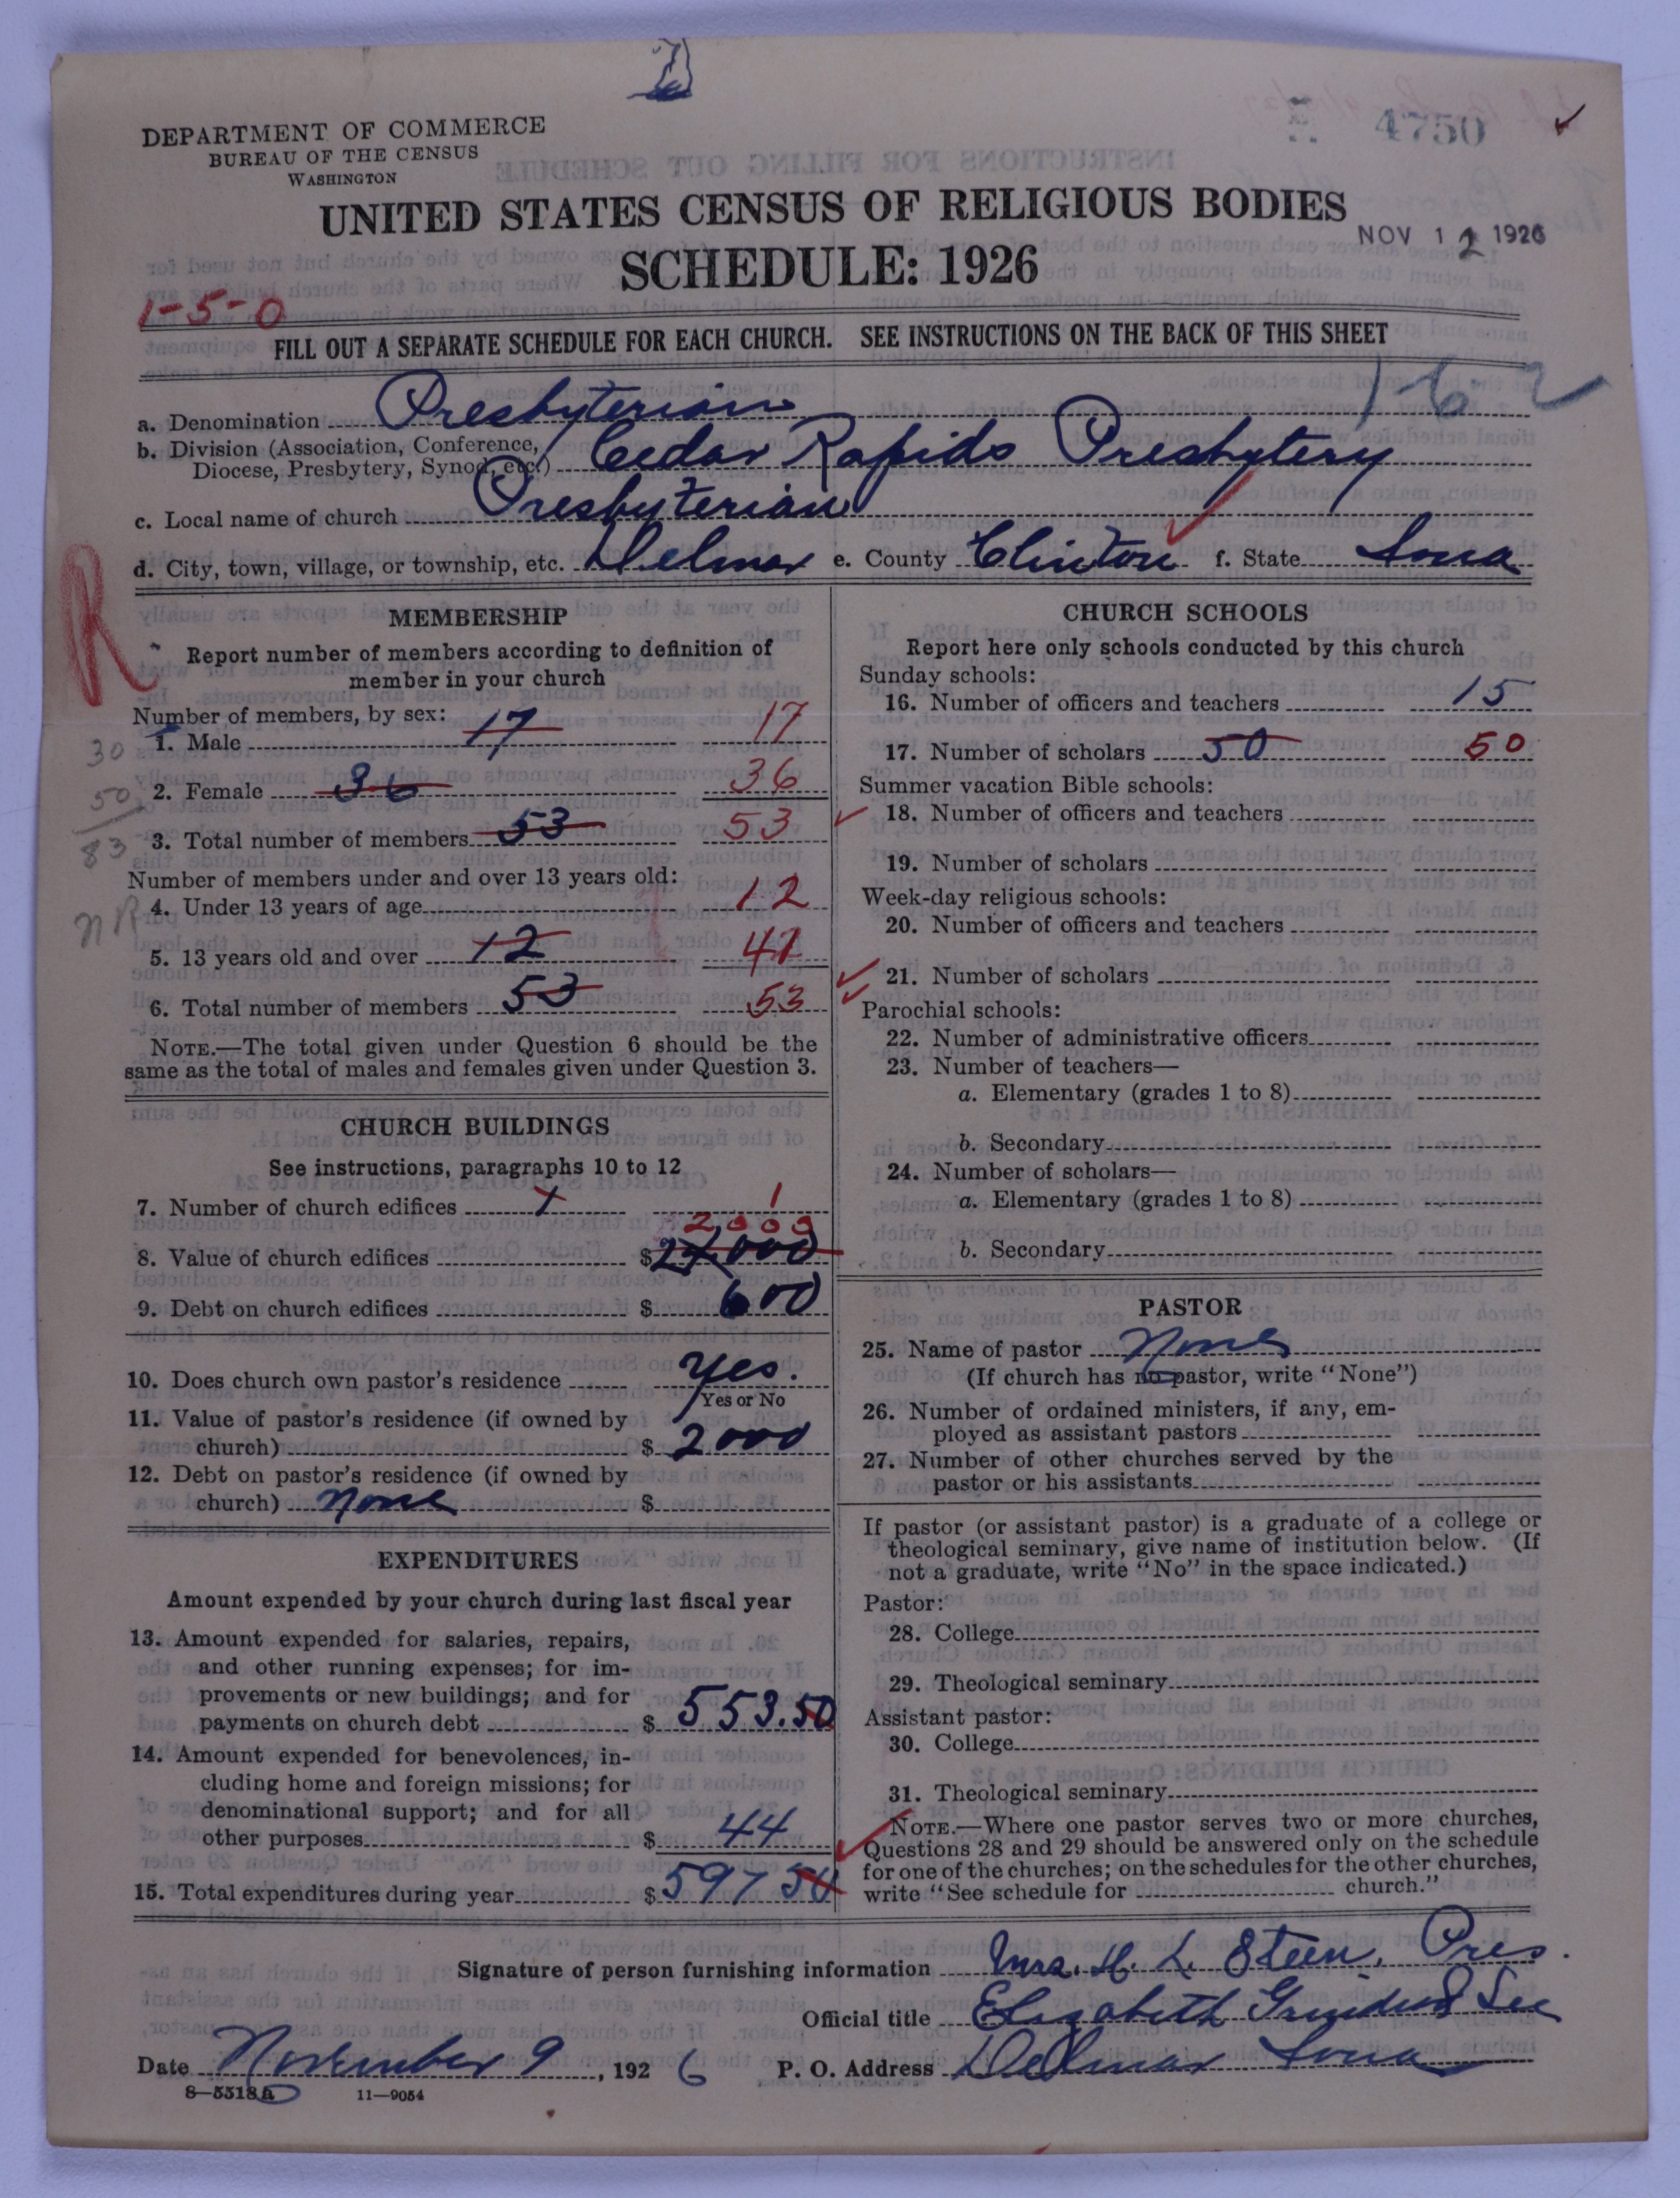 DEPARTMENT OF COMMERCE
BUREAU OF THE CENSUS
WASHINGTON
4750
UNITED STATES CENSUS OF RELIGIOUS BODIES
NOV 12 1926
SCHEDULE: 1926
1-5-0
FILL OUT A SEPARATE SCHEDULE FOR EACH CHURCH. SEE INSTRUCTIONS ON THE BACK OF THIS SHEET
1-62
a. Denomination Presbyterian
b. Division (Association, Conference,
Diocese, Presbytery, Synod, etc.) Cedar Rapids Presbytery
c. Local name of church Presbyterian
d. City, town, village, or township, etc. Delmar e. County Clinton f. State Iowa
R
MEMBERSHIP
Report number of members according to definition of
member in your church
Number of members, by sex:
1. Male 17 17
30
2. Female 36 36
50
3. Total number of members 53 53
83
Number of members under and over 13 years old:
4. Under 13 years of age 12
NR
5. 13 years old and over 12 41
6. Total number of members 53 53
NOTE.—The total given under Question 6 should be the
same as the total of males and females given under Question 3.
CHURCH BUILDINGS
See instructions, paragraphs 10 to 12
7. Number of church edifices 1 1
2,000
8. Value of church edifices $
9. Debt on church edifices $ 600
10. Does church own pastor's residence Yes.
Yes or No
11. Value of pastor's residence (if owned by
church) $ 2000
12. Debt on pastor's residence (if owned by
church) None $
EXPENDITURES
Amount expended by your church during last fiscal year
13. Amount expended for salaries, repairs,
and other running expenses; for im-
provements or new buildings; and for
payments on church debt $ 553.50
14. Amount expended for benevolences, in-
cluding home and foreign missions; for
denominational support; and for all
other purposes $ 44
15. Total expenditures during year $ 597 50
CHURCH SCHOOLS
Report here only schools conducted by this church
Sunday schools:
16. Number of officers and teachers 15
17. Number of scholars 50 50
Summer vacation Bible schools:
18. Number of officers and teachers
19. Number of scholars
Week-day religious schools:
20. Number of officers and teachers
21. Number of scholars
Parochial schools:
22. Number of administrative officers
23. Number of teachers—
a. Elementary (grades 1 to 8)
b. Secondary
24. Number of scholars—
a. Elementary (grades 1 to 8)
b. Secondary
PASTOR
25. Name of pastor None
(If church has no pastor, write "None")
26. Number of ordained ministers, if any, em-
ployed as assistant pastors
27. Number of other churches served by the
pastor or his assistants
If pastor (or assistant pastor) is a graduate of a college or
theological seminary, give name of institution below. (If
not a graduate, write "No" in the space indicated.)
Pastor:
28. College
29. Theological seminary
Assistant pastor:
30. College
31. Theological seminary
NOTE.—Where one pastor serves two or more churches,
Questions 28 and 29 should be answered only on the schedule
for one of the churches; on the schedules for the other churches,
write "See schedule for church."
Signature of person furnishing information Mrs. H. L. Steen, Pres.
Official title Elizabeth Sec
Date November 9, 1926 P. O. Address Delmar Iowa
8—5518a 11—9054